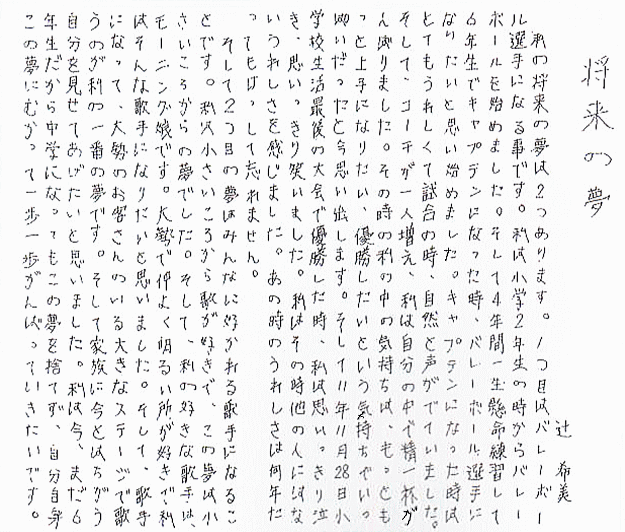 将来の夢
辻 希美
私の将来の夢は2つあります。1つ目はバレーボー
ル選手になる事です。私は小学2年生の時からバレー
ボールを始めました。そして4年間一生懸命練習して
6年生でキャプテンになった時、バレーボール選手に
なりたいと思い始めました。キャプテンになった時は
とてもうれしくて試合の時、自然と声がでていました。
そして、コーチが一人増え、私は自分の中で精一杯が
んばりました。その時の私の中の気持ちは、もっとも
っと上手になりたい、優勝したいという気持ちでいっ
ぱいだったと今思い出します。そして11年11月28日小
学校生活最後の大会で優勝した時、私は思いっきり泣
き、思いっきり笑いました。私はその時他の人にはな
いうれしさを感じました。あの時のうれしさは何年た
ってもけっして忘れません。
そして2つ目の夢はみんなに好かれる歌手になるこ
とです。私は小さいころから歌が好きで、この夢は小
さいころからの夢でした。そして、私の好きな歌手は、
モーニング娘です。大勢で仲よく明るい所が好きで私
はそんな歌手になりたいと思いました。そして、歌手
になって、大勢のお客さんのいる大きなステージで歌
うのが私の一番の夢です。そして家族に今とはちがう
自分を見せてあげたいと思いました。私は今、まだ6
年生だから中学になってもこの夢を捨てず、自分自身
この夢にむかって一歩一歩がんばっていきたいです。